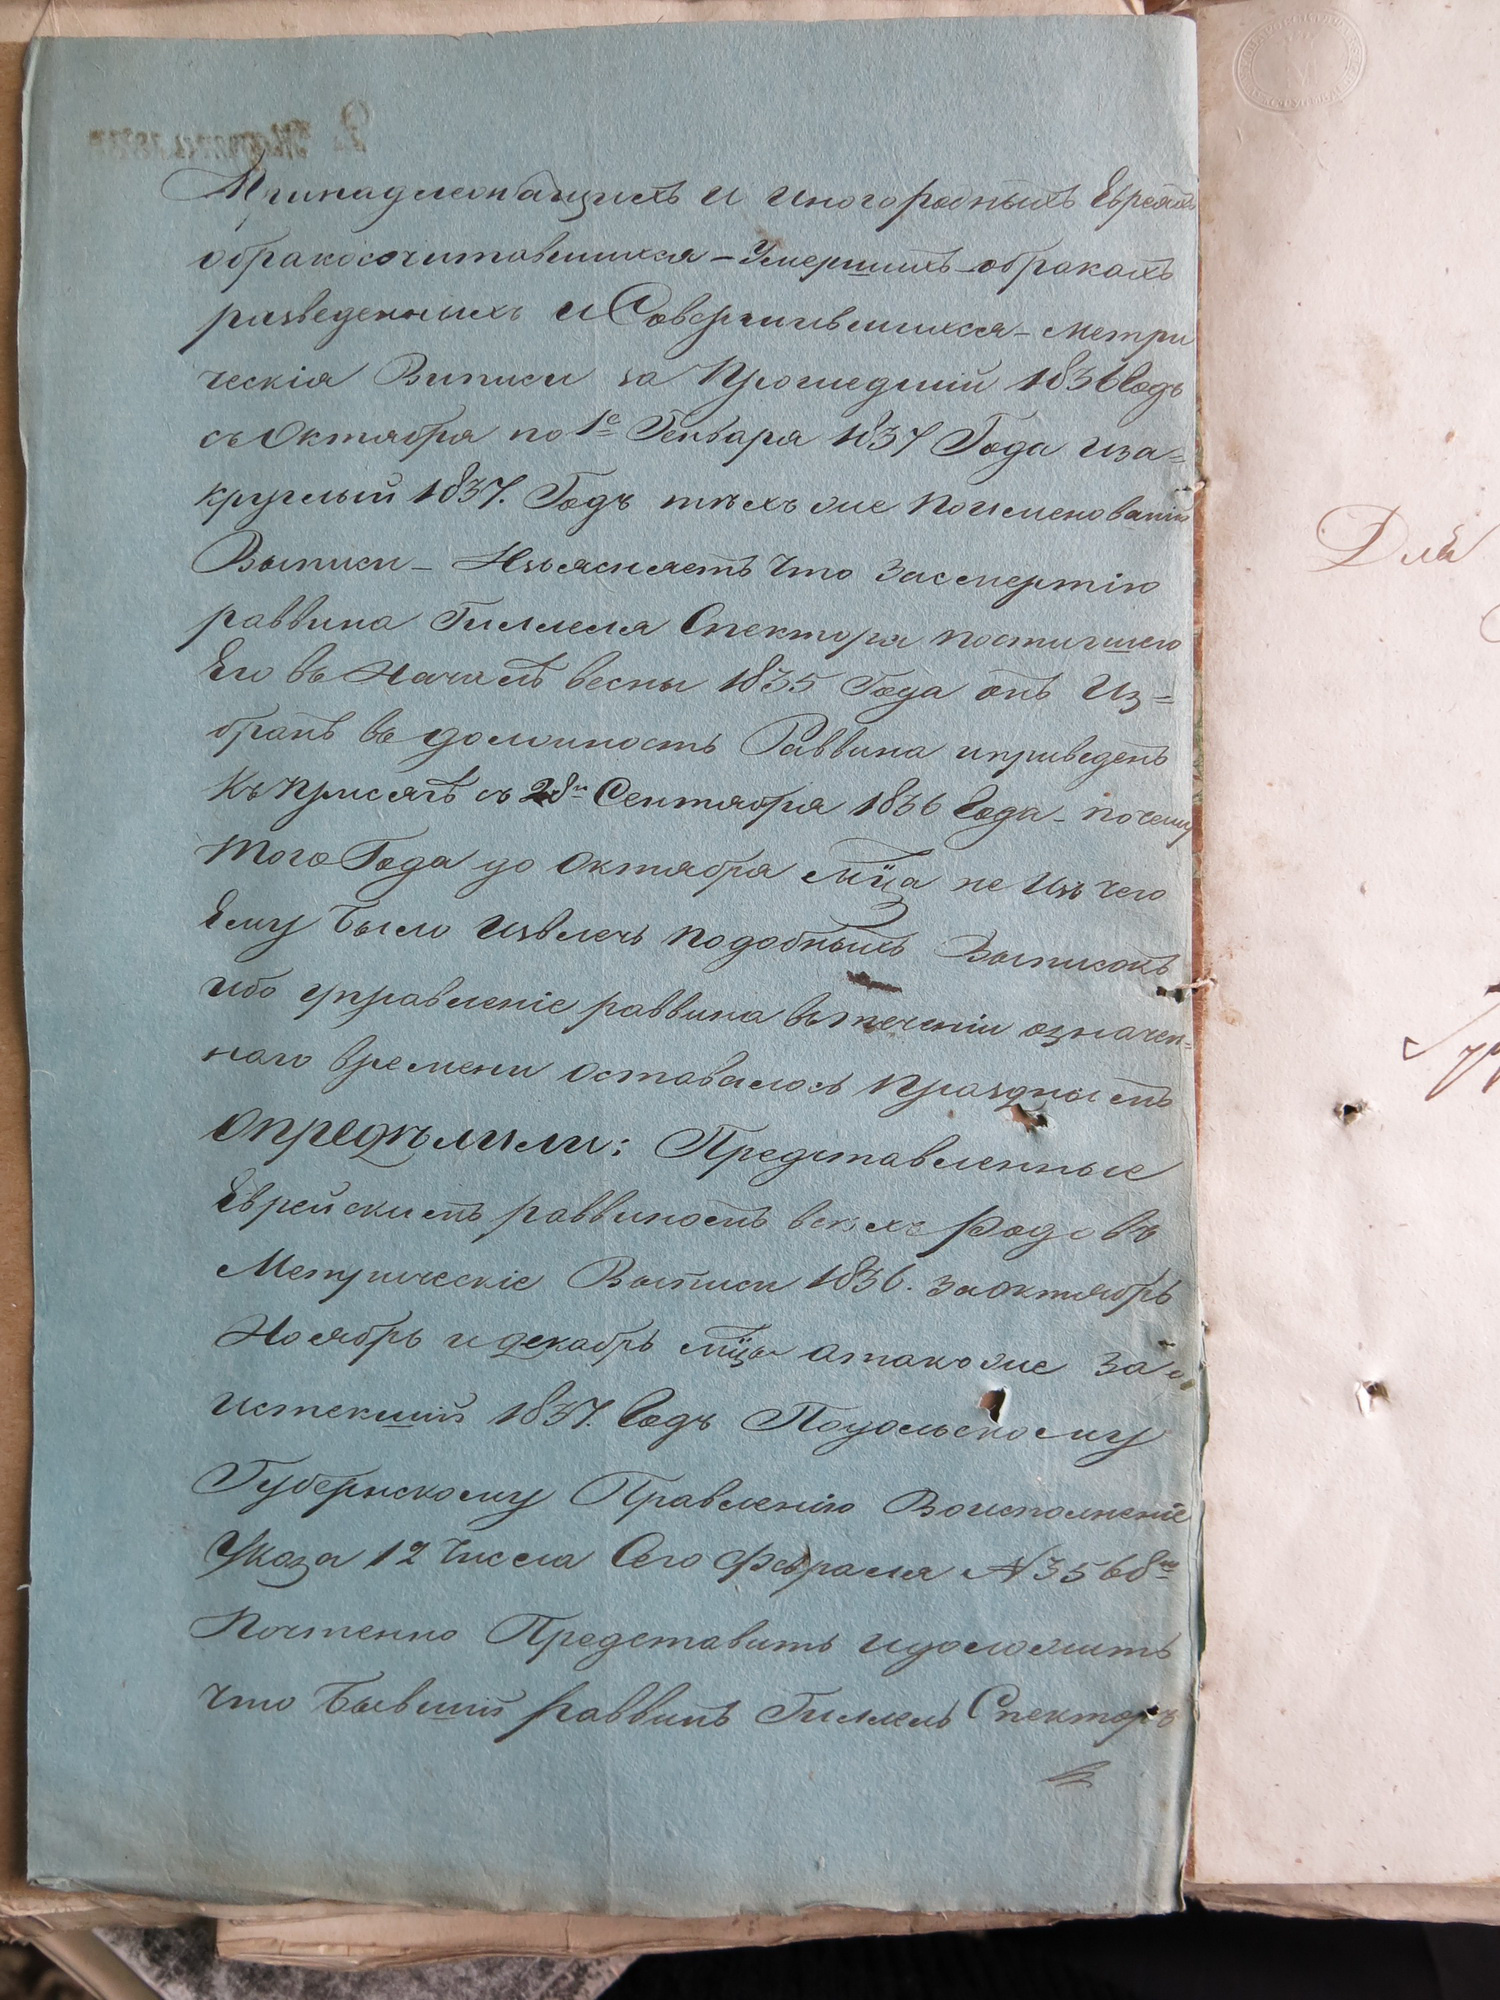 принадлежащихъ и иногородныхъ Евреяхъ
обракосочитавшихся – Умершихъ – обракахъ
разведенныхъ и Совершившихся – метри
ческія Виписи за Прошедшій 1836 Годъ
съ Октября по 1е Генваря 1837 Года иза=
круглый 1837. Годъ тѣхъ же поименованій
Выписи – Изъясняетъ Что Засмертію
раввина Гиллеля Спектора постигшею
Его въ Началѣ весны 1835 Года онъ Из=
бранъ въ должность Раввина иприведенъ
Къ присягѣ съ 28го Сентября 1836 Года – почему
того Года до Октября мца не Изъ чего
Ему было извлечь подобныхъ Выписокъ
ибо управленіе раввина въ теченіи означен=
наго времени оставалось празднымъ
Опредѣлили: Представленные
Еврейскимъ раввиномъ всехъ Родовъ
Метрическіе Выписи 1836. за октябрь
Ноябрь и декабрь мцы атакоже за
истекшій 1837. Годъ Подольскому
Губернскому Правленію Воисполненіе
Указа 12 Числа Сего Февраля № 3568го
Почтенно Представить идоложить
что Бывшій раввинъ Гиллель Спекторъ
Для